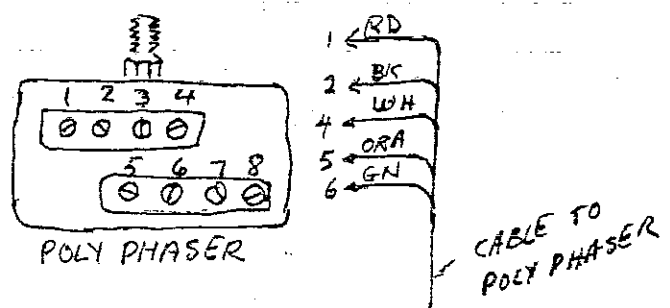 1 2 3 4
5 6 7 8
POLY PHASER
1 RD
2 BK
4 WH
5 ORA
6 GN
CABLE TO
POLY PHASER